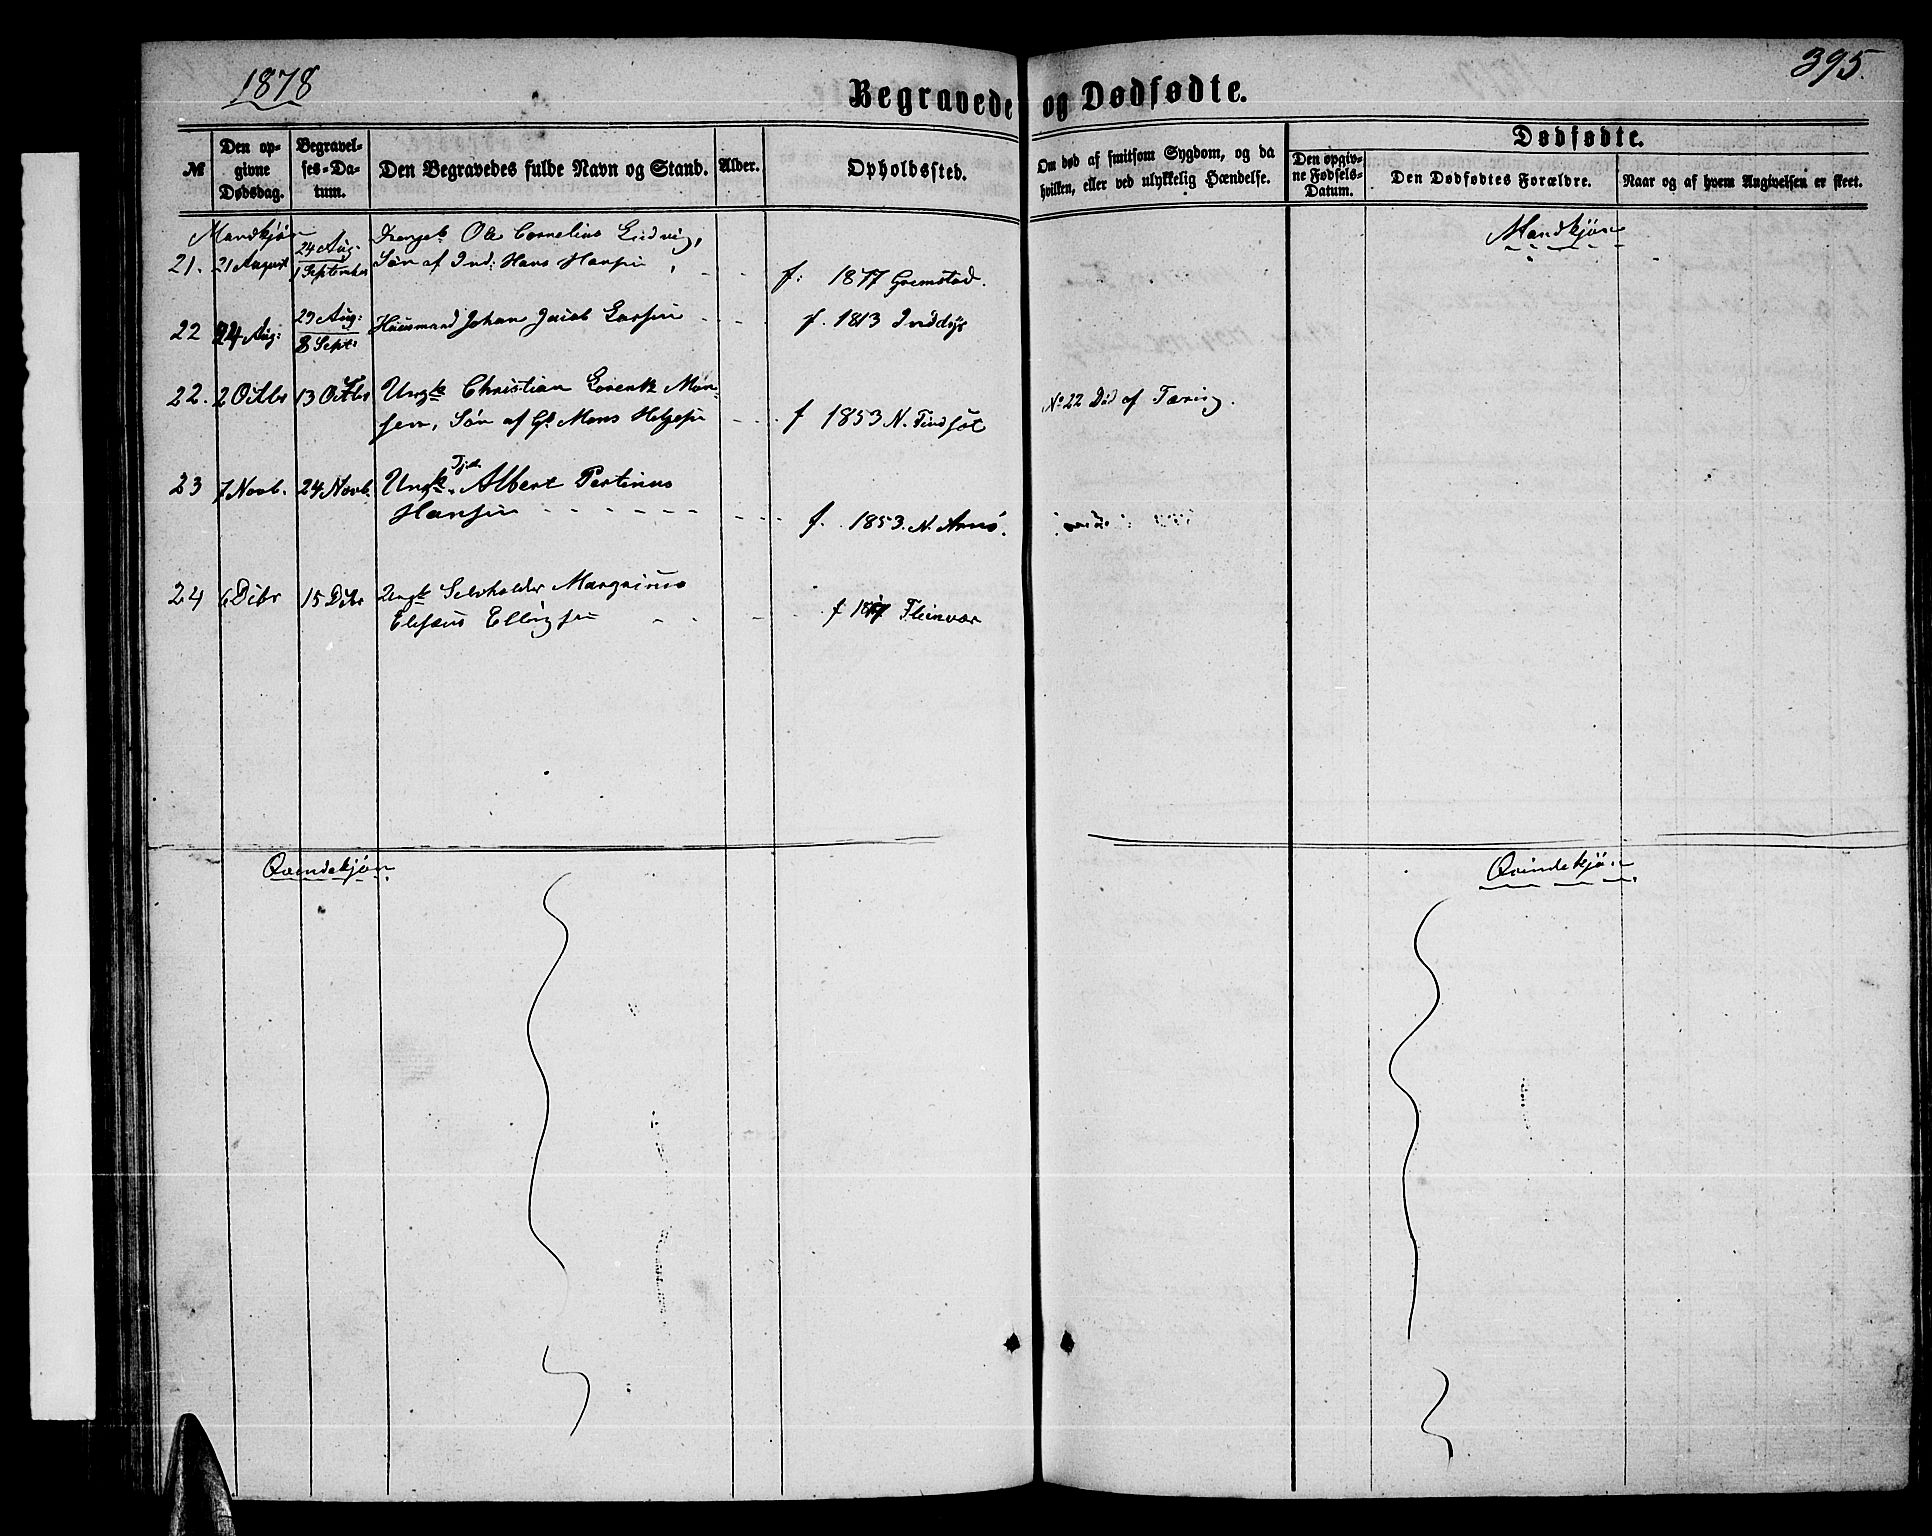 1878
395.
Begravede og Dødfødte.
№
Den op-
givne
Dødsdag.
Begravel-
ses-Da-
tum.
Den Begravedes fulde Navn og Stand.
Alder.
Opholdssted.
Om død af smitsom Sygdom, og da
hvilken, eller ved ulykkelig Hændelse.
Dødfødte.
Den opgiv-
ne Fødsels-
Datum.
Den Dødfødtes Forældre.
Naar og af hvem Angivelsen er skeet.
Mandkjøn
Mandkjøn
24 Aug:
Ole Cornelius Ludvig,
21. 21 August 1 September Søn af Ind: Hans Hansen
f: 1877 Gremstad.
29 Aug:
22 24 Aug: 8 Sept: Huusmand Johan Jacob Larsen f. 1813 Inddyr
22. 2 Octbr 13 Octbr Ungk Christian Lorentz Mon-
sen, Søn af Gb Mons Helgesen f 1853 N. Findset
No 22 Død af Tæring.
Tjst.
23 7 Novb. 24 Novb. Ungk. Albert Pertinus
Hansen f. 1853. N. Arnø.
24 6 Dcbr 15 Dcbr Ungk Selvholder Margrinus
Elesæus Ellingsen f Fleinvær
Qvindekjøn
Qvindekjøn